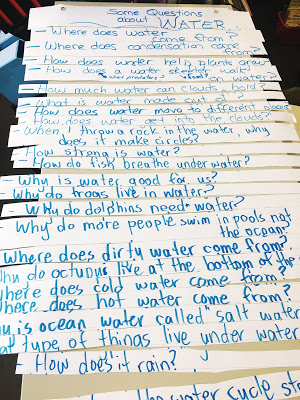 Some Questions
about WATER
- Where does water
come from?
- Where does condensation come
from?
- How does water help plants grow?
- How does a water skeeter walk
on water?
- How much water can clouds hold?
- What is water made out of?
- How does water move to different places?
- How does water get into the clouds?
When I throw a rock in the water, why
does it make circles?
- How strong is water?
- How do fish breathe under water?
- Why is water good for us?
- Why do frogs live in water?
- Why do dolphins need water?
- Why do more people swim in pools not
the ocean?
Where does dirty water come from?
Why do octupus live at the bottom of the
Where does cold water come from?
Where does hot water come from?
is ocean water called "salt water
type of things live under water
- How does it rain?
water cycle